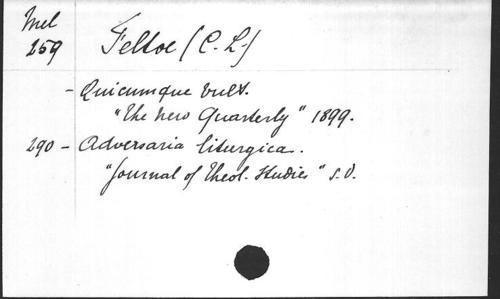 Mel
259 Feltoe (C. L.)
- Quicumque vult.
"The new Quarterly" 1899.
290 - Adversaria liturgica.
"Journal of Theol. Studies" s.d.